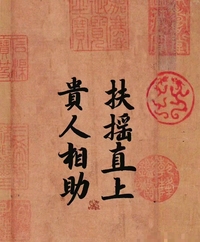 扶摇直上
貴人相助